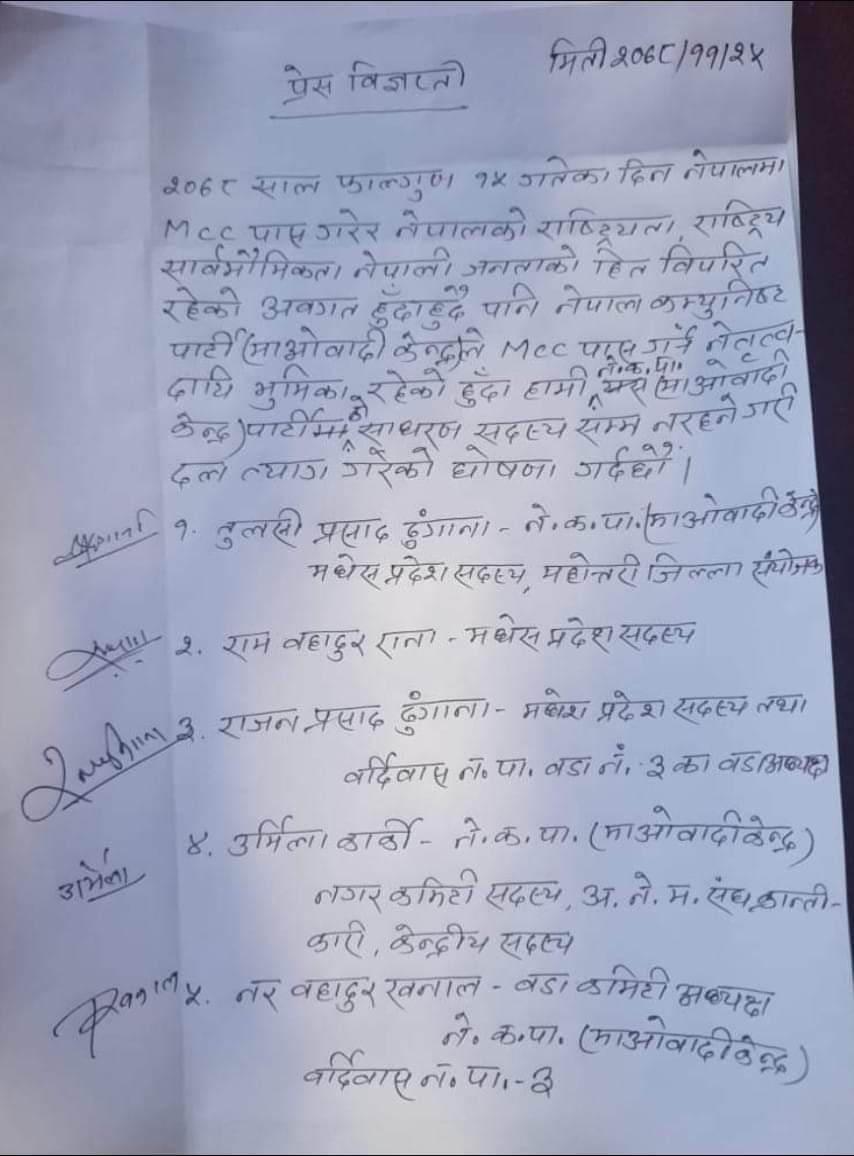 मिती २०७८/११/२५
प्रेस विज्ञप्ती
२०७८ साल फाल्गुण १५ गतेका दिन नेपालमा
MCC पास गरेर नेपालको राष्ट्रियता, राष्ट्रिय
सार्वभौमिकता नेपाली जनताको हित विपरित
रहेको अवगत हुँदाहुदै पनि नेपाल कम्युनिष्ट
पार्टी (माओवादी केन्द्र)ले MCC पास गर्न नेतृत्व-
दायि भुमिका रहेको हुँदा हामी ने.क.पा. यस (माओवादी
केन्द्र) पार्टीमा को साधरण सदस्य सम्म नरहने गरी
दल त्याग गरेको घोषणा गर्दछौं।
१. तुलसी प्रसाद ढुंगाना - ने.क.पा. (माओवादी केन्द्र)
मधेस प्रदेश सदस्य, महोत्तरी जिल्ला संयोजक
२. राम वहादुर राना - मधेस प्रदेश सदस्य
३. राजन प्रसाद ढुंगाना - मधेश प्रदेश सदस्य तथा
वर्दिवास न.पा. वडा नं. ३ का वडा अध्यक्ष
४. उर्मिला कार्की - ने.क.पा. (माओवादी केन्द्र)
उर्मिला
नगर कमिटी सदस्य, अ.ने.म. संघ क्रान्ती-
कारी, केन्द्रीय सदस्य
५. नर वहादुर खनाल - वडा कमिटी अध्यक्ष
ने.क.पा. (माओवादी केन्द्र)
वर्दिवास न.पा.-३